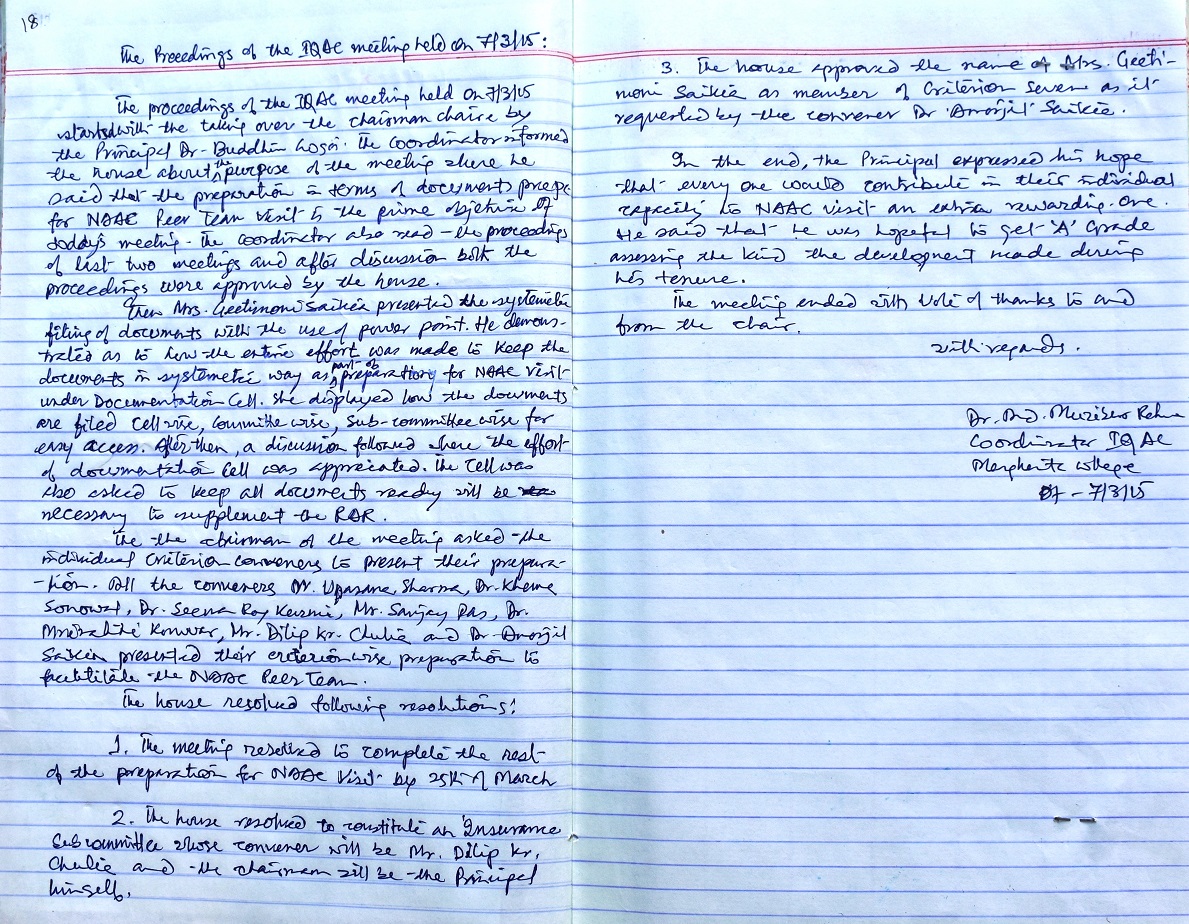 18
The Proceedings of the IQAC meeting held on 7/3/15:
The proceedings of the IQAC meeting held on 7/3/15
started with the taking over the chairman chaire by
the Principal Dr. Buddhin Gogoi. The coordinator informed
the house about the purpose of the meeting where he
said that the preparation in terms of documents
for NAAC Peer Team visit is the prime objetive of
today's meeting. The coordinator also read the proceedings
of last two meetings and after discussion both the
proceedings were approved by the house.
Then Mrs. Geetimoni Saikia presented the systemetic
filing of documents with the use of power point. He demons-
trated as to how the entire effort was made to keep the
documents in systemetic way as part of preparation for NAAC visit
under Documentation Cell. She displayed how the documents
are filed cell wise, committee wise, sub-committee wise for
easy access. After then, a discussion followed where the effort
of documentation Cell was appreciated. The Cell was
also asked to keep all documents ready will be
necessary to supplement the RAR.
The the chairman of the meeting asked the
individual Criterion conveners to present their prepara-
-tion. All the conveners Mr. Upasana Sharma, Dr. Khema
Sonowal, Dr. Seema Roy Kurmi, Mr. Sanjay Das, Dr.
Konwar, Mr. Dilip Kr. Chulia and Dr. Anorjil
Saikia presented their criterion wise preparation to
facilitate the NAAC Peer Team.
The house resolved following resolutions:
1. The meeting resolved to complete the rest
of the preparation for NAAC Visit by 25th of March
2. The house resolved to constitute an 'Insurance
Sub committee whose convener will be Mr. Dilip Kr.
Chulia and the chairman will be the Principal
himself.
3. The house approved the name of Mrs. Geeti-
moni Saikia as member of Criterion Seven as it
requested by the convener Dr Anorjil Saikia.
In the end, the Principal expressed his hope
that every one would contribute in their individual
capacity to NAAC visit an extra rewarding one.
He said that he was hopeful to get 'A' Grade
assessing the kind the development made during
his tenure.
The meeting ended with Vote of thanks to and
from the chair.
with regards.
Dr. Md. Muzibur Rehm
Coordinator IQAC
Margherita College
7/3/15